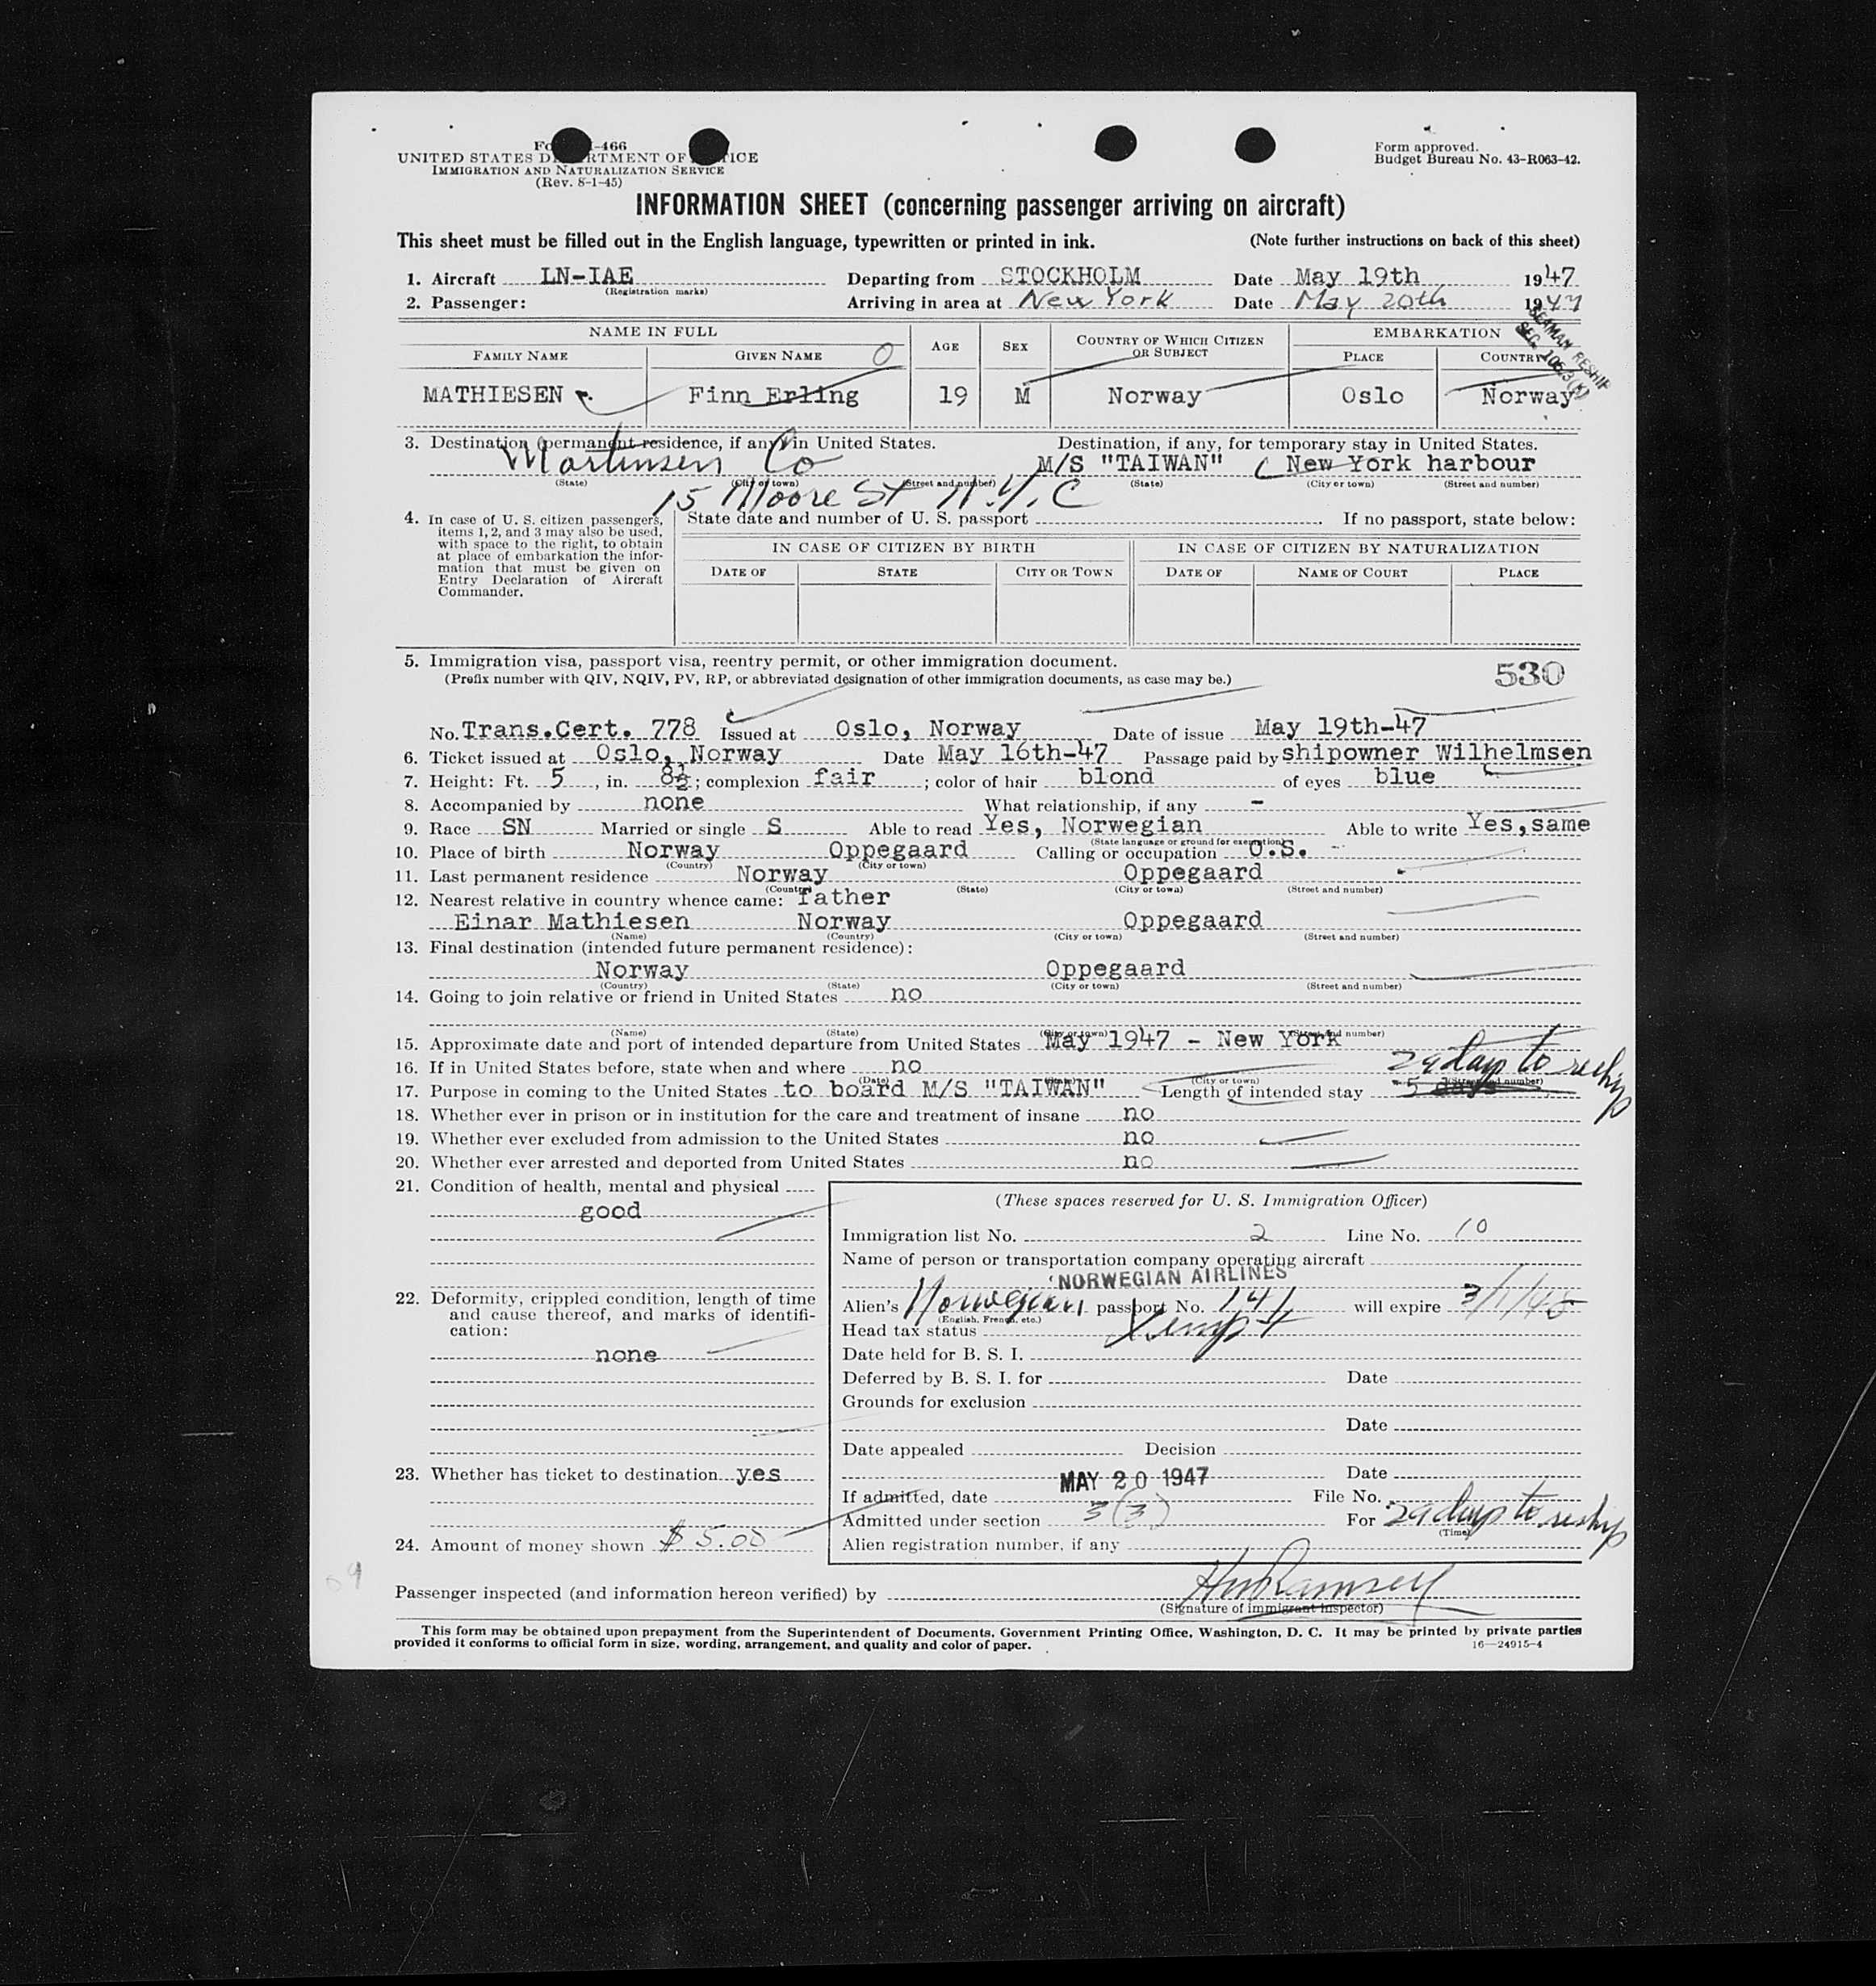 Form I-466
UNITED STATES DEPARTMENT OF JUSTICE
IMMIGRATION AND NATURALIZATION SERVICE
(Rev. 8-1-45)
Form approved.
Budget Bureau No. 43-R063-42.
INFORMATION SHEET (concerning passenger arriving on aircraft)
This sheet must be filled out in the English language, typewritten or printed in ink. (Note further instructions on back of this sheet)
1. Aircraft LN-IAE Departing from STOCKHOLM Date May 19th 1947
(Registration marks)
2. Passenger: Arriving in area at New York Date May 20th 1947
SEAMAN RESHIP
NAME IN FULL AGE SEX COUNTRY OF WHICH CITIZEN OR SUBJECT EMBARKATION
FAMILY NAME GIVEN NAME PLACE COUNTRY
MATHIESEN Finn Erling 19 M Norway Oslo Norway
3. Destination (permanent residence, if any) in United States. Destination, if any, for temporary stay in United States.
Martinsen Co M/S "TAIWAN" New York harbour
(State) (City or town) (Street and number) (State) (City or town) (Street and number)
15 Moore St N.Y.C
4. In case of U. S. citizen passengers, items 1, 2, and 3 may also be used, with space to the right, to obtain at place of embarkation the information that must be given on Entry Declaration of Aircraft Commander.
State date and number of U. S. passport If no passport, state below:
IN CASE OF CITIZEN BY BIRTH IN CASE OF CITIZEN BY NATURALIZATION
DATE OF STATE CITY OR TOWN DATE OF NAME OF COURT PLACE
5. Immigration visa, passport visa, reentry permit, or other immigration document.
(Prefix number with QIV, NQIV, PV, RP, or abbreviated designation of other immigration documents, as case may be.)
530
No. Trans.Cert. 778 Issued at Oslo, Norway Date of issue May 19th-47
6. Ticket issued at Oslo, Norway Date May 16th-47 Passage paid by shipowner Wilhelmsen
7. Height: Ft. 5, in. 8½; complexion fair; color of hair blond of eyes blue
8. Accompanied by none What relationship, if any -
9. Race SN Married or single S Able to read Yes, Norwegian Able to write Yes, same
(State language or ground for exemption)
10. Place of birth Norway Oppegaard Calling or occupation O.S.
(Country) (City or town)
11. Last permanent residence Norway Oppegaard
(Country) (State) (City or town) (Street and number)
12. Nearest relative in country whence came: father
Einar Mathiesen Norway Oppegaard
(Name) (Country) (City or town) (Street and number)
13. Final destination (intended future permanent residence):
Norway Oppegaard
(Country) (State) (City or town) (Street and number)
14. Going to join relative or friend in United States no
(Name) (State) (City or town) (Street and number)
15. Approximate date and port of intended departure from United States May 1947 - New York
16. If in United States before, state when and where no
29 days to reship
(Date) (State) (City or town) (Street and number)
17. Purpose in coming to the United States to board M/S "TAIWAN" Length of intended stay 5 days
18. Whether ever in prison or in institution for the care and treatment of insane no
19. Whether ever excluded from admission to the United States no
20. Whether ever arrested and deported from United States no
21. Condition of health, mental and physical
good
22. Deformity, crippled condition, length of time and cause thereof, and marks of identification:
none
23. Whether has ticket to destination yes
24. Amount of money shown $ 5.00
(These spaces reserved for U. S. Immigration Officer)
Immigration list No. 2 Line No. 10
Name of person or transportation company operating aircraft
NORWEGIAN AIRLINES
Alien's Norwegian passport No. will expire
(English, French, etc.)
Head tax status
Date held for B. S. I.
Deferred by B. S. I. for Date
Grounds for exclusion
Date
Date appealed Decision
Date
If admitted, date MAY 20 1947 File No.
Admitted under section 3(3) For 29 days to reship
(Time)
Alien registration number, if any
Passenger inspected (and information hereon verified) by
(Signature of immigrant inspector)
This form may be obtained upon prepayment from the Superintendent of Documents, Government Printing Office, Washington, D. C. It may be printed by private parties
provided it conforms to official form in size, wording, arrangement, and quality and color of paper. 16—24915-4